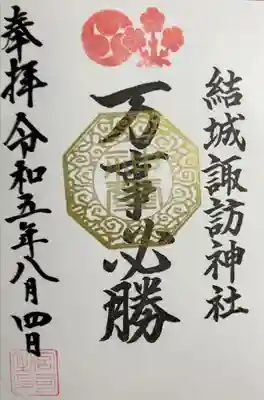 結城諏訪神社
万事必勝
奉拝 令和五年八月四日